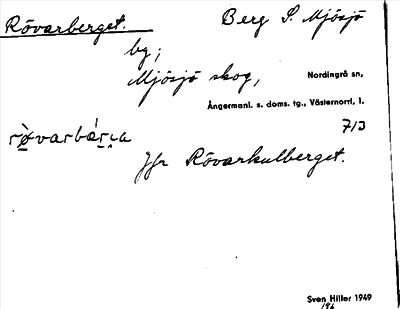 Rövarberget. Berg S. Mjösjö
by;
Mjösjö skog, Nordingrå sn,
Ångermanl. s. doms. tg., Västernorrl. l.
7/3
Jfr Rövarkulberget.
Sven Hiller 1949